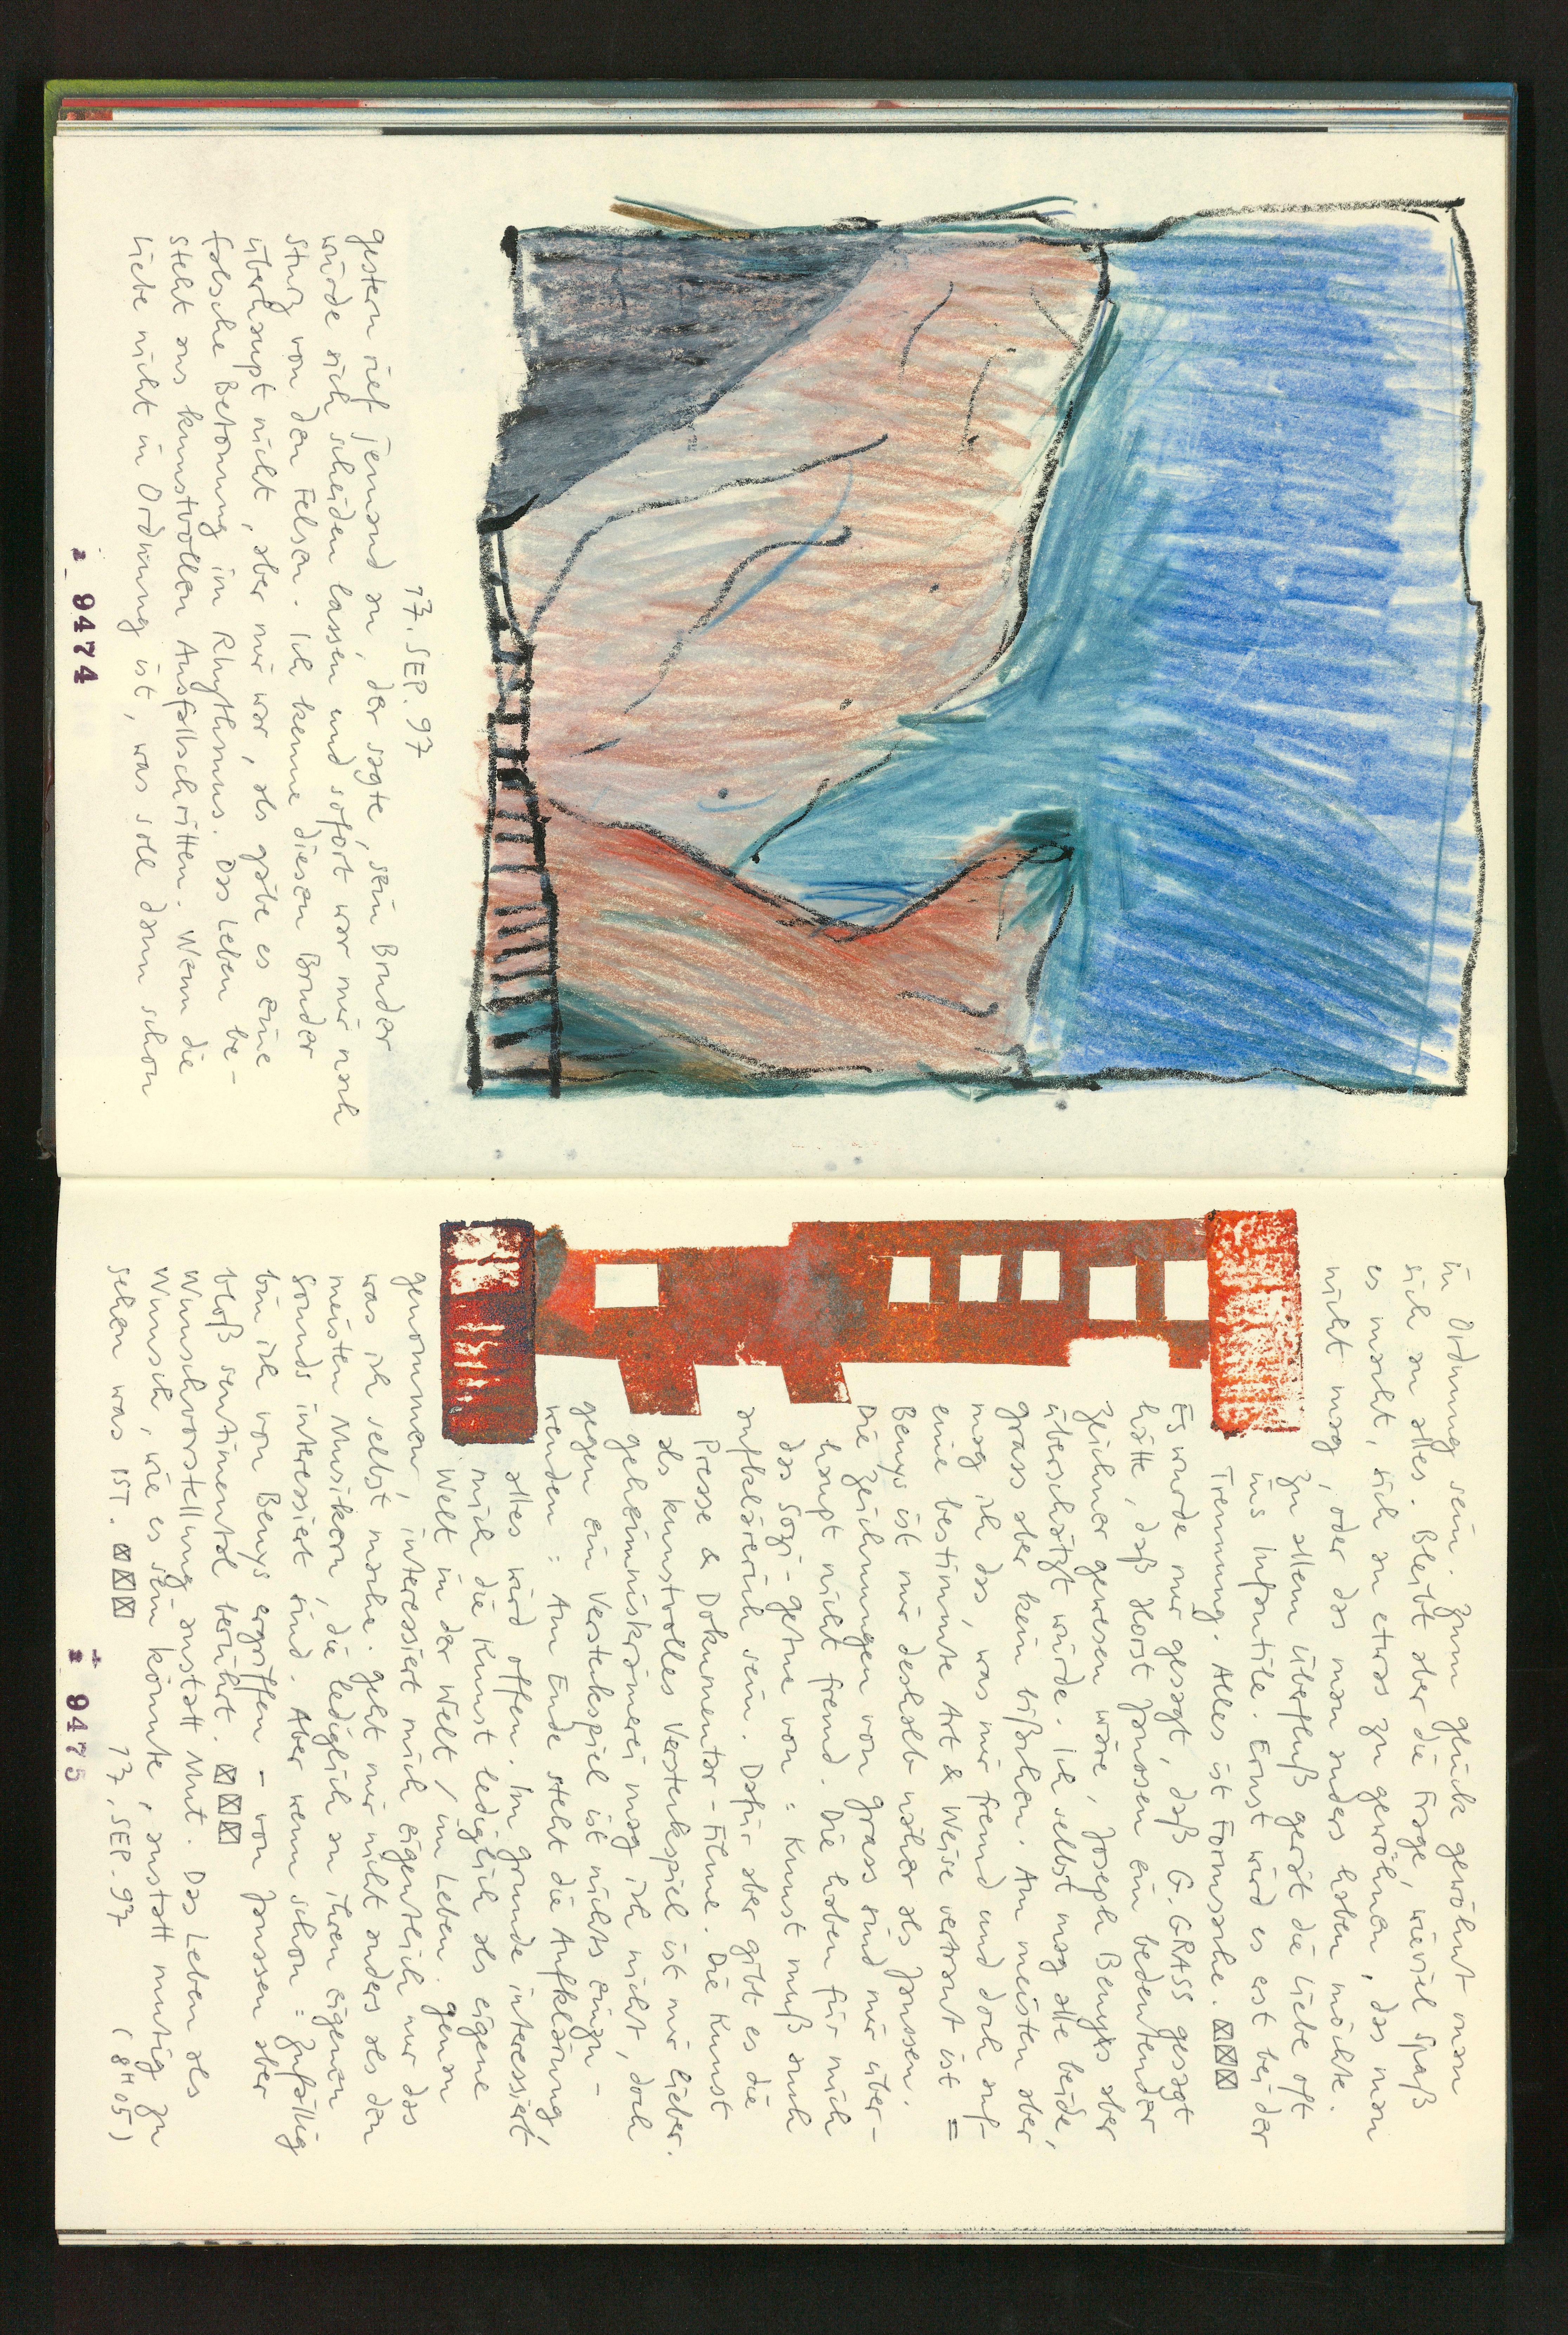 17. SEP. 97
gestern rief jemand an, der sagte, sein Bruder
würde sich scheiden lassen und sofort war mir nach
Stuß von den Felsen. Ich kenne diesen Bruder
überhaupt nicht, aber mir war, als gäbe es eine
falsche Betonung im Rhythmus. Das Leben be-
steht aus kunstvollen Ausfallschritten. Wenn die
Liebe nicht in Ordnung ist, was soll dann schon
2 9474
in Ordnung sein. Zum Glück gewöhnt man
sich an alles. Bleibt aber die Frage, wieviel Spaß
es macht, sich an etwas zu gewöhnen, das man
nicht mag, oder das man anders haben möchte.
Zu allem Überfluß gerät die Liebe oft
ins Infantile. Ernst wird es erst bei der
Trennung. Alles ist Formsache.
Es wurde mir gesagt, daß G. GRASS gesagt
hätte, daß Horst Janssen ein bedeutender
Zeichner gewesen wäre, Joseph Beuys aber
überschätzt würde. Ich selbst mag alle beide,
Grass aber kein bißchen. Am meisten aber
mag ich das, was mir fremd und doch auf
eine bestimmte Art & Weise vertraut ist =
Beuys ist mir deshalb näher als Janssen.
Die Zeichnungen von Grass sind mir über-
haupt nicht fremd. Die haben für mich
das Sozi-getue von: Kunst muß auch
aufklärerisch sein. Dafür aber gibt es die
Presse & Dokumentar-Filme. Die Kunst
als kunstvolles Versteckspiel ist mir lieber.
Geheimniskrämerei mag ich nicht, doch
gegen ein Versteckspiel ist nichts einzu-
wenden: Am Ende steht die Aufklärung,
alles wird offen. Im Grunde interessiert
mich die Kunst lediglich als eigene
Welt in der Welt / im Leben. Genau
genommen, interessiert mich eigentlich nur das
was ich selbst mache. Geht mir nicht anders als den
meisten Musikern, die lediglich an ihren eigenen
Sounds interessiert sind. Aber wenn schon: zufällig
bin ich von Beuys ergriffen – von Janssen aber
bloß sentimental berührt.
Wunschvorstellung anstatt Mut. Das Leben als
Wunsch, wie es sein könnte, anstatt mutig zu
sehen was IST. 17. SEP. 97 (8H05)
2 9475